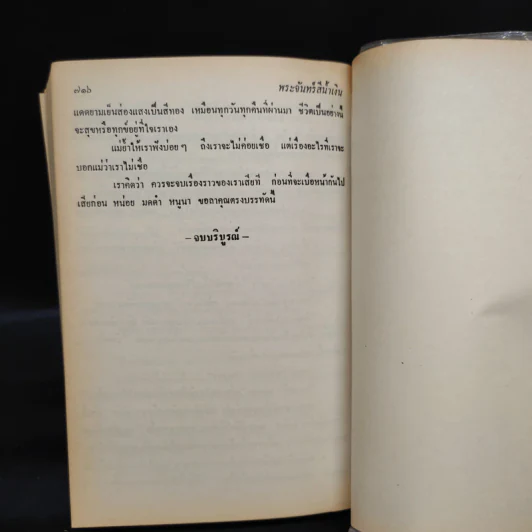 ๗๑๖ พระจันทร์สีน้ำเงิน
แดดยามเย็นส่องแสงเป็นสีทอง เหมือนทุกวันทุกคืนที่ผ่านมา ชีวิตเป็นอย่างนี้
จะสุขหรือทุกข์อยู่ที่ใจเราเอง
แม่ย้ำให้เราฟังบ่อยๆ ถึงเราจะไม่ค่อยเชื่อ แต่เรื่องอะไรที่เราจะ
บอกแม่ว่าเราไม่เชื่อ
เราคิดว่า ควรจะจบเรื่องราวของเราเสียที ก่อนที่จะเบื่อหน้ากันไป
เสียก่อน หน่อย มดดำ หนูนา ขอลาคุณตรงบรรทัดนี้
– จบบริบูรณ์ –